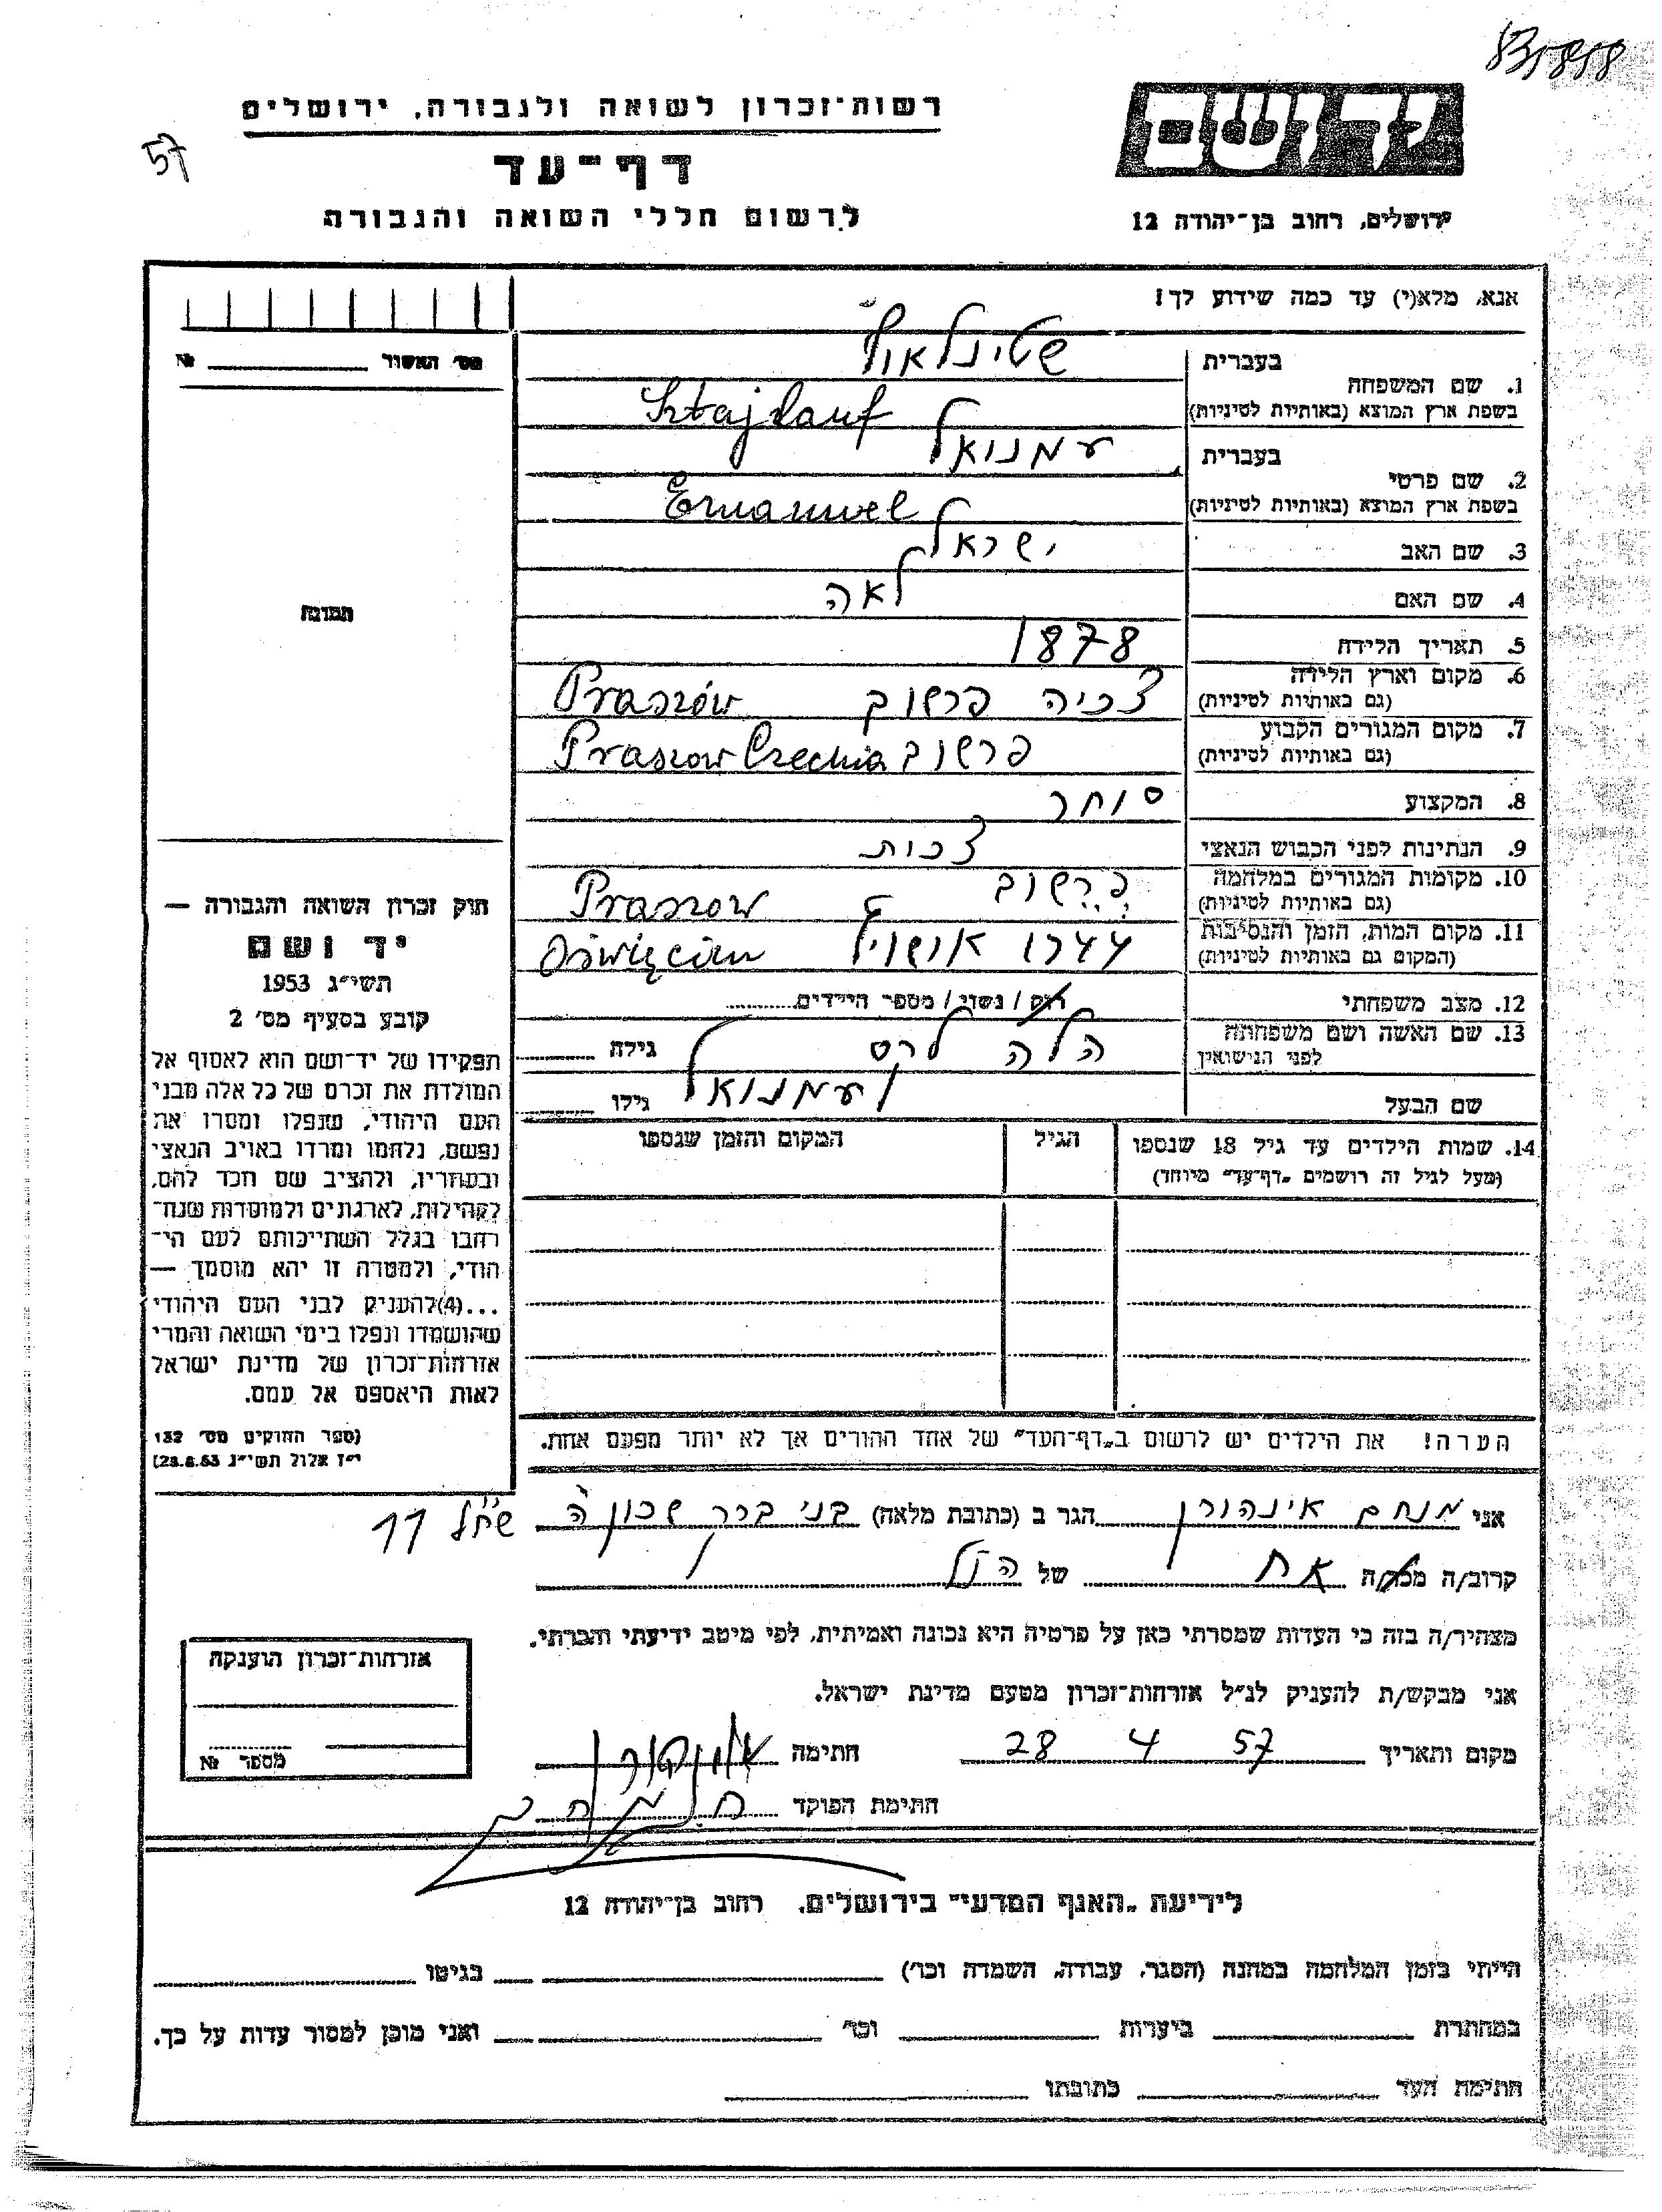 רשות־זכרון לשואה ולגבורה, ירושלים
57
דף־עד
לרשום חללי השואה והגבורה
יד ושם
ירושלים, רחוב בן־יהודה 12
אנא, מלא(י) עד כמה שידוע לך!
מס׳ האשור № 
תמונה
1. שם המשפחה בעברית שטינלאוף
בשפת ארץ המוצא (באותיות לטיניות) Sztajlauf
2. שם פרטי בעברית עמנואל
בשפת ארץ המוצא (באותיות לטיניות) Emanuel
3. שם האב ישראל
4. שם האם לאה
5. תאריך הלידה 1878
6. מקום וארץ הלידה (גם באותיות לטיניות) צכיה פרשוב Praszów
7. מקום המגורים הקבוע (גם באותיות לטיניות) פרשוב Praszow Czechia
8. המקצוע סוחר
9. הנתינות לפני הכבוש הנאצי צכות
10. מקומות המגורים במלחמה (גם באותיות לטיניות) פרשוב Praszow
11. מקום המות, הזמן והנסיבות (המקום גם באותיות לטיניות) 1944 אושויץ Oświęcim
12. מצב משפחתי רוק / נשוי / מספר הילדים
13. שם האשה ושם משפחתה לפני הנישואין הלה גילה
שם הבעל עמנואל גילו
14. שמות הילדים עד גיל 18 שנספו הגיל המקום והזמן שנספו
(מעל לגיל זה רושמים „דף־עד״ מיוחד)
הערה! את הילדים יש לרשום ב„דף־העד״ של אחד ההורים אך לא יותר מפעם אחת.
חוק זכרון השואה והגבורה —
יד ושם
תשי״ג 1953
קובע בסעיף מס׳ 2
תפקידו של יד־ושם הוא לאסוף אל
המולדת את זכרם של כל אלה מבני
העם היהודי, שנפלו ומסרו את
נפשם, נלחמו ומרדו באויב הנאצי
ובעוזריו, ולהציב שם וזכר להם,
לקהילות, לארגונים ולמוסדות שנח־
רבו בגלל השתייכותם לעם הי־
הודי, ולמטרה זו יהא מוסמך —
...(4)להעניק לבני העם היהודי
שהושמדו ונפלו בימי השואה והמרי
אזרחות־זכרון של מדינת ישראל
לאות היאספם אל עמם.
(ספר החוקים מס׳ 132
י״ז אלול תשי״ג 28.8.53)
אני מנחם אינהורן הגר ב (כתובת מלאה) בני ברק שכון ה׳ 11
קרוב/ה מכר/ה אח של הנ״ל
מצהיר/ה בזה כי העדות שמסרתי כאן על פרטיה היא נכונה ואמיתית, לפי מיטב ידיעתי והכרתי.
אני מבקש/ת להעניק לנ״ל אזרחות־זכרון מטעם מדינת ישראל.
מקום ותאריך 57 4 28 חתימה
חתימת הפוקד
אזרחות־זכרון הוענקה
מספר №
לידיעת „האגף המדעי״ בירושלים, רחוב בן־יהודה 12
הייתי בזמן המלחמה במחנה (הסגר, עבודה, השמדה וכו׳) בגיטו
במחתרת ביערות וכו׳ ואני מוכן למסור עדות על כך.
חתימת העד כתובתו